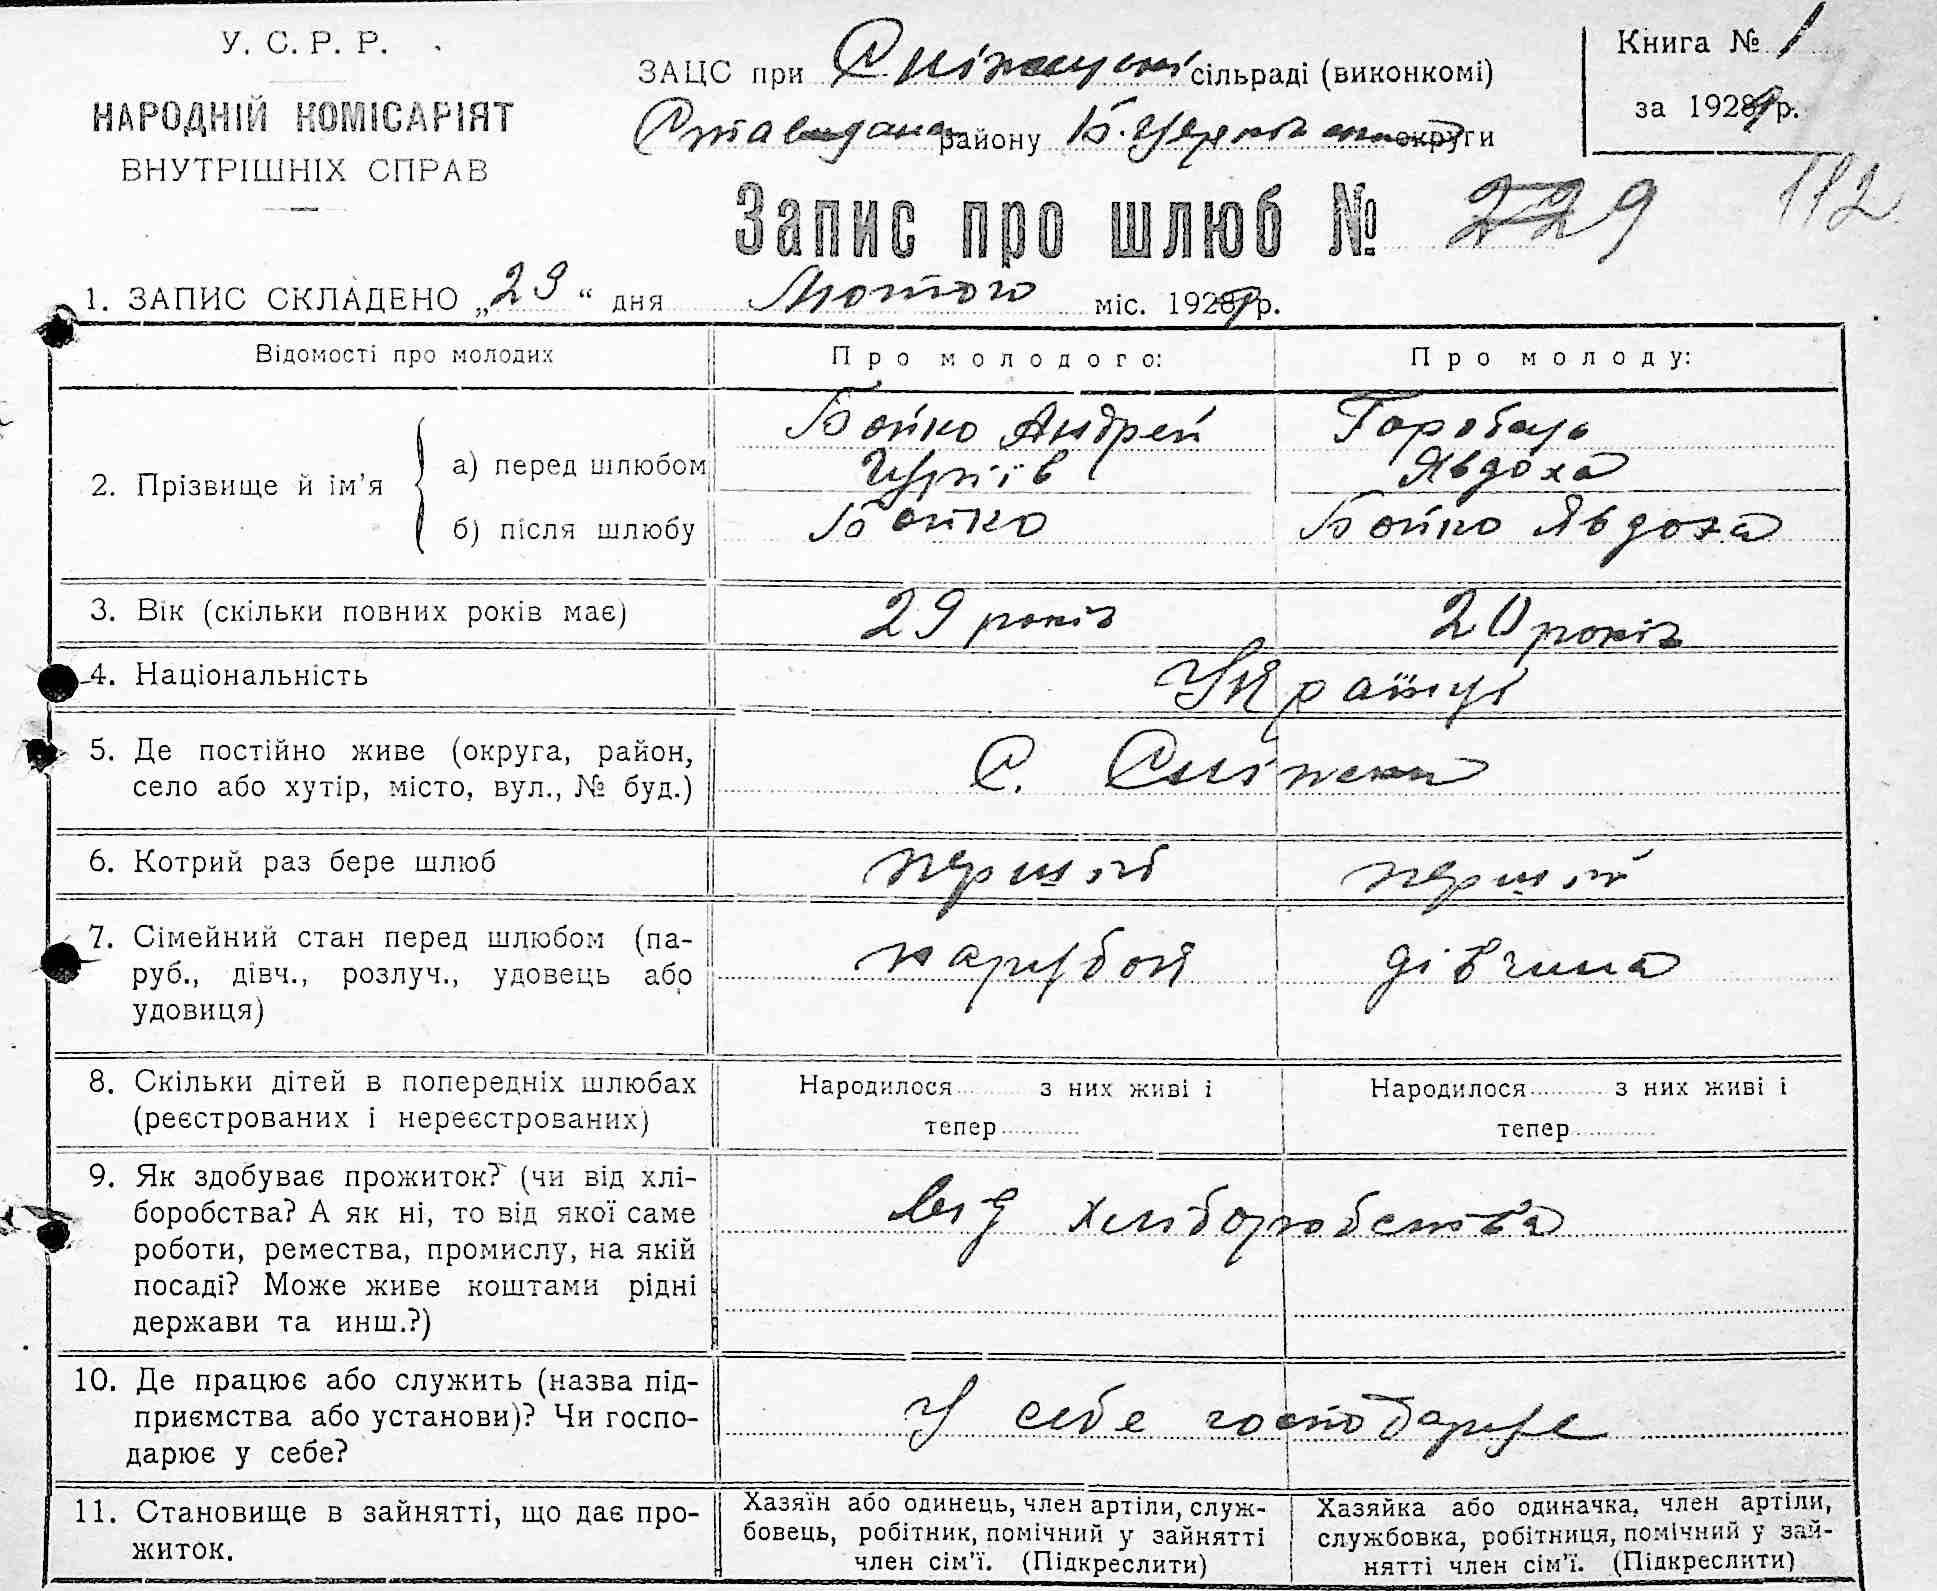 У. С. Р. Р.
НАРОДНІЙ КОМІСАРІЯТ
ВНУТРІШНІХ СПРАВ
ЗАЦС при сільраді (виконкомі)
району Б. Церківської округи
Книга № 1
за 1929 р.
Запис про шлюб № 229
112
1. ЗАПИС СКЛАДЕНО „23“ дня Лютого міс. 1929 р.
Відомості про молодих
Про молодого:
Про молоду:
2. Прізвище й ім’я
а) перед шлюбом
Бойко Андрей
Юріїв
Горобець
Явдоха
б) після шлюбу
Бойко
Бойко Явдоха
3. Вік (скільки повних років має)
29 років
20 років
4. Національність
Українці
5. Де постійно живе (округа, район,
село або хутір, місто, вул., № буд.)
С. Сніжки
6. Котрий раз бере шлюб
перший
перший
7. Сімейний стан перед шлюбом (па-
руб., дівч., розлуч., удовець або
удовиця)
парубок
дівчина
8. Скільки дітей в попередніх шлюбах
(реєстрованих і нереєстрованих)
Народилося з них живі і
тепер
Народилося з них живі і
тепер
9. Як здобуває прожиток? (чи від хлі-
боробства? А як ні, то від якої саме
роботи, ремества, промислу, на якій
посаді? Може живе коштами рідні
держави та инш.?)
від хліборобства
10. Де працює або служить (назва під-
приємства або установи)? Чи госпо-
дарює у себе?
У себе господарує
11. Становище в зайнятті, що дає про-
житок.
Хазяїн або одинець, член артіли, служ-
бовець, робітник, помічний у зайнятті
член сім’ї. (Підкреслити)
Хазяйка або одиначка, член артіли,
службовка, робітниця, помічний у зай-
нятті член сім’ї. (Підкреслити)